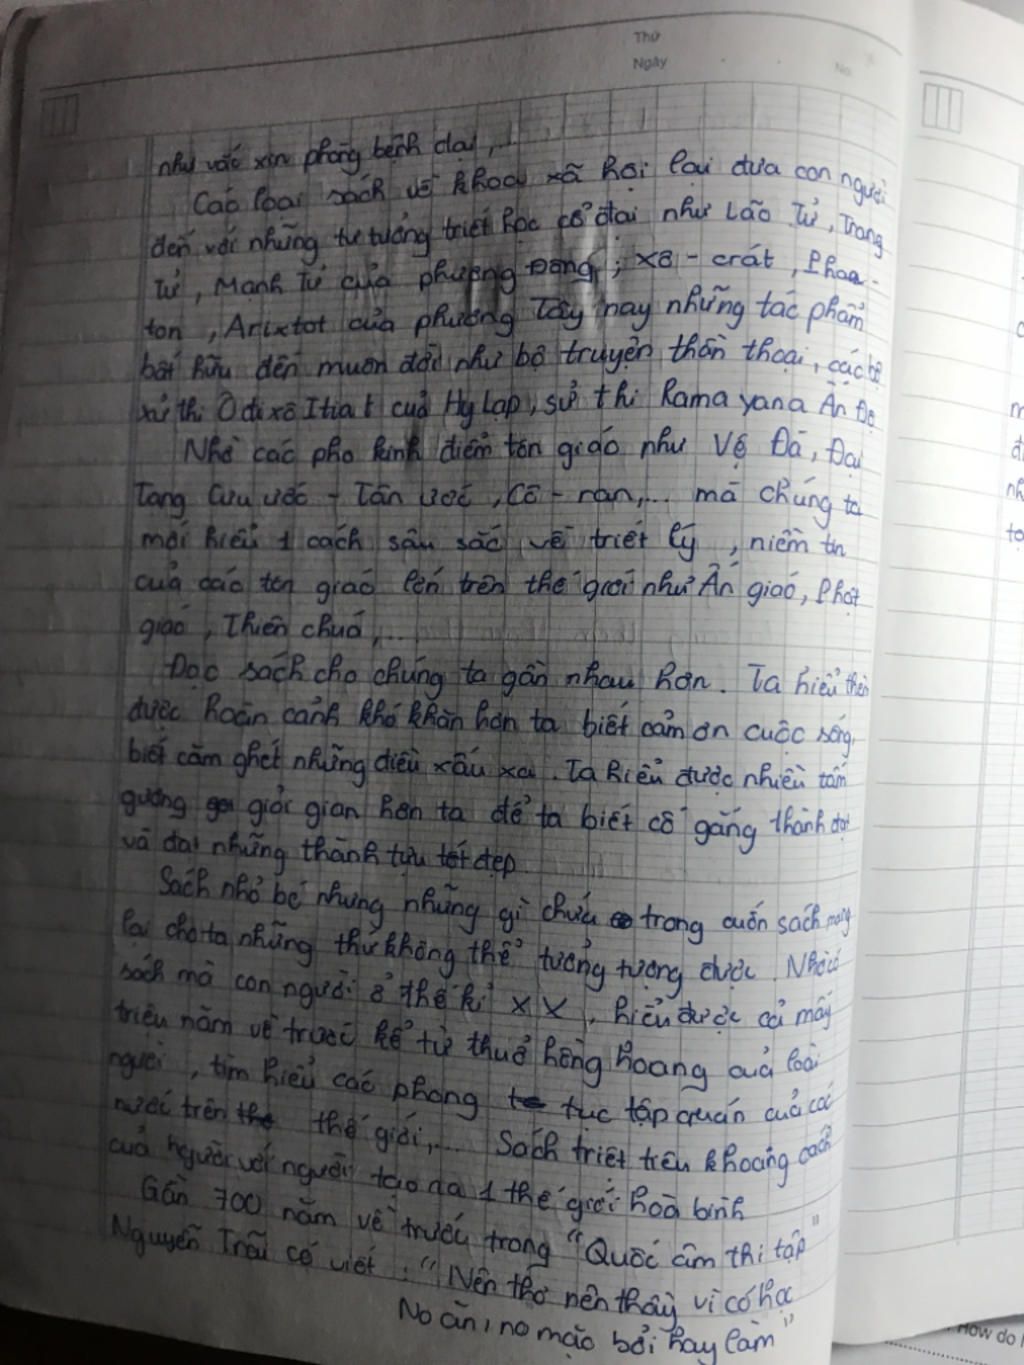 Thứ
Ngày
No.
như vắc xin phòng bệnh dại,...
Các loại sách về khoa xã hội lại đưa con người
đến với những tư tưởng triết học cổ đại như Lão Tử, Trang
Tử, Mạnh Tử của phương Đông; Xô-crát, Phoa-
ton, Arixtot của phương Tây hay những tác phẩm
bất hữu đến muôn đời như bộ truyện thần thoại, các bộ
xử thi Ô đi xê Itiat của Hy Lạp, sử thi Rama yana Ấn Độ
Nhờ các pho kinh điển tôn giáo như Vệ Đà, Đại
Tạng Cựu ước - Tân ước, Cô-ran,... mà chúng ta
mới hiểu 1 cách sâu sắc về triết lý, niềm tin
của các tôn giáo lớn trên thế giới như Ấn giáo, Phật
giáo, Thiên chúa,...
Đọc sách cho chúng ta gần nhau hơn. Ta hiểu thêm
được hoàn cảnh khó khăn hơn ta biết cảm ơn cuộc sống,
biết căm ghét những điều xấu xa. Ta hiểu được nhiều tấm
gương giỏi gian hơn ta để ta biết cố gắng thành đạt
và đạt những thành tựu tốt đẹp.
Sách nhỏ bé nhưng những gì chứa trong cuốn sách mang
lại cho ta những thứ không thể tưởng tượng được. Nhờ có
sách mà con người ở thế kỉ XX, hiểu được cả mấy
triệu năm về trước kể từ thuở hồng hoang của loài
người, tìm hiểu các phong tục tập quán của các
nước trên thế giới,... Sách triệt tiêu khoảng cách
của người với người tạo ra 1 thế giới hoà bình
Gần 700 năm về trước trong "Quốc âm thi tập"
Nguyễn Trãi có viết: "Nên thợ nên thầy vì có học
No ăn, no mặc bởi hay làm"
How do